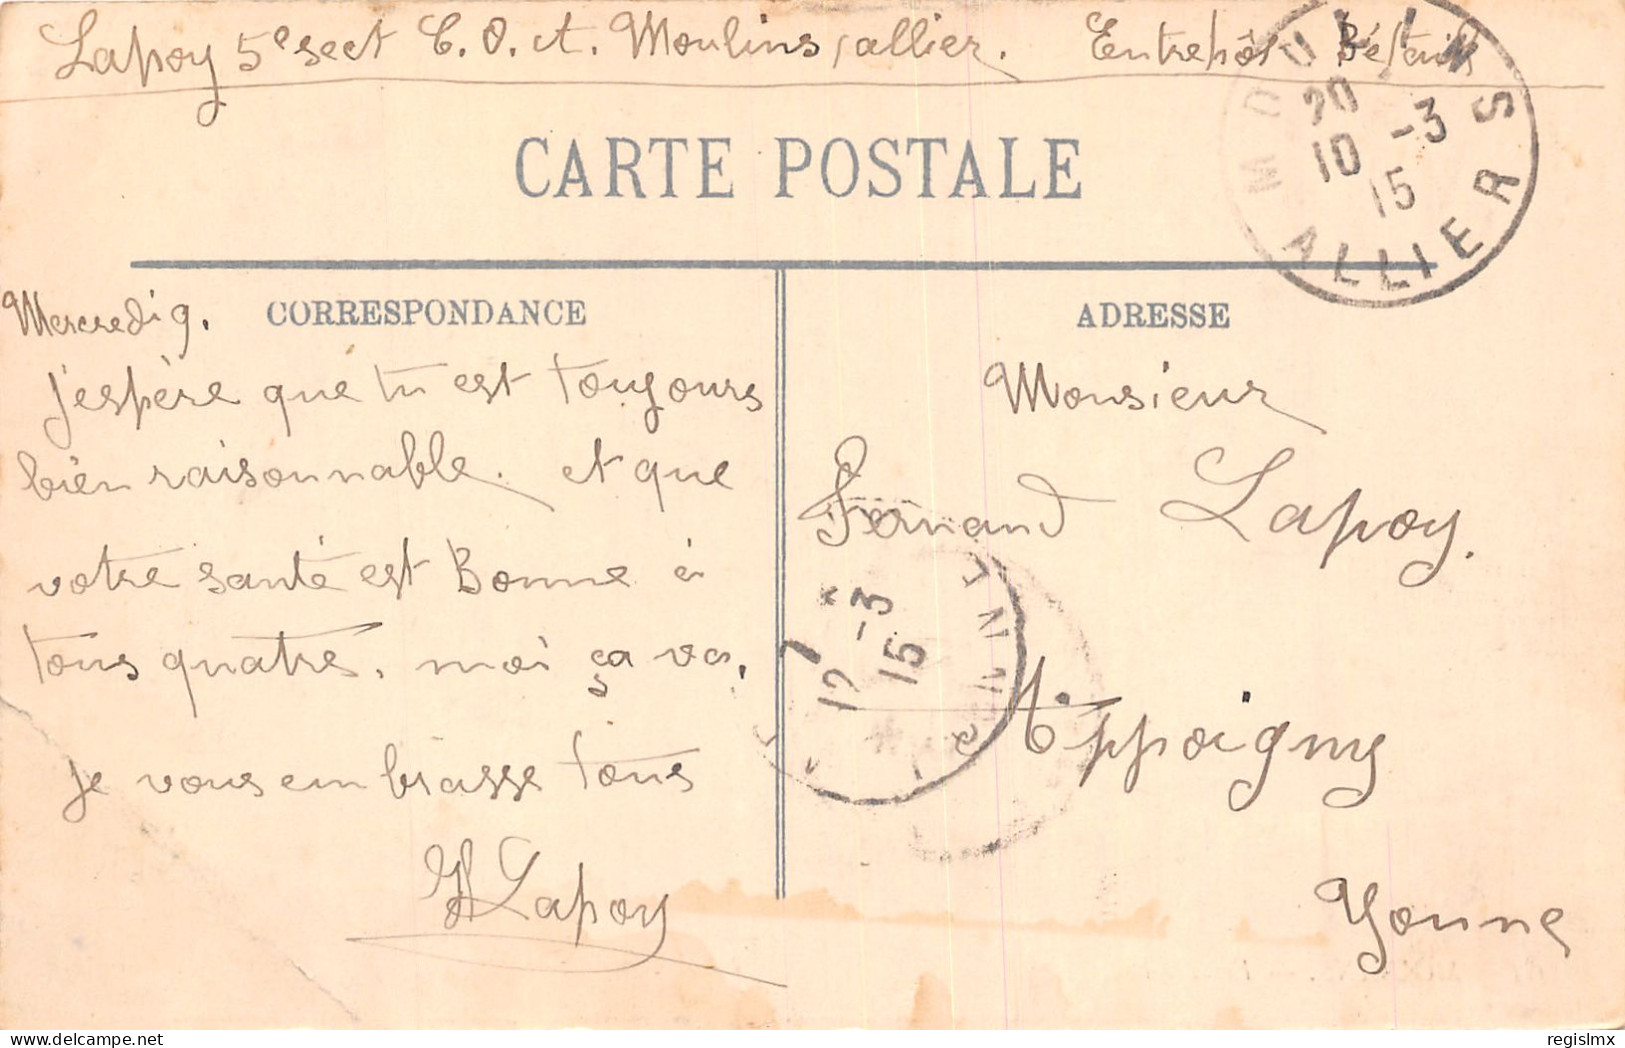 Lapoy 5e sect C.O.A. Moulins, allier. Entrepôt
MOULINS
20
10 -3
15
ALLIER
CARTE POSTALE
CORRESPONDANCE
ADRESSE
Mercredi 9.
j'espère que tu est toujours
bien raisonnable. et que
votre santé est Bonne à
tous quatre. moi ça va.
je vous embrasse tous
H Lapoy
Monsieur
Fernand Lapoy.
Appoigny
Yonne
12 -3
15
delcampe.net
regislmx